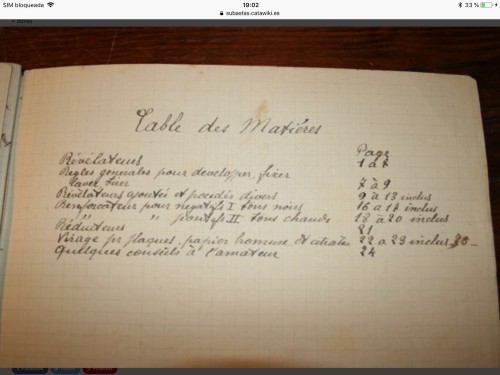 SIM bloqueada 19:02 33 %
subastas.catawiki.es
Table des Matières
Page
Révélateurs 1 à 7
Règles générales pour developper, fixer
laver, virer 7 à 9
Révélateurs ajoutés et procédés divers 9 à 13 inclus
Renforcateur pour négatifs I tons noirs 16 à 17 inclus
" " positifs II tons chauds 18 à 20 inclus
Réducteurs 21
Virage pr plaques, papier bromure et citrates 22 à 23 inclus
Quelques conseils à l'amateur 24